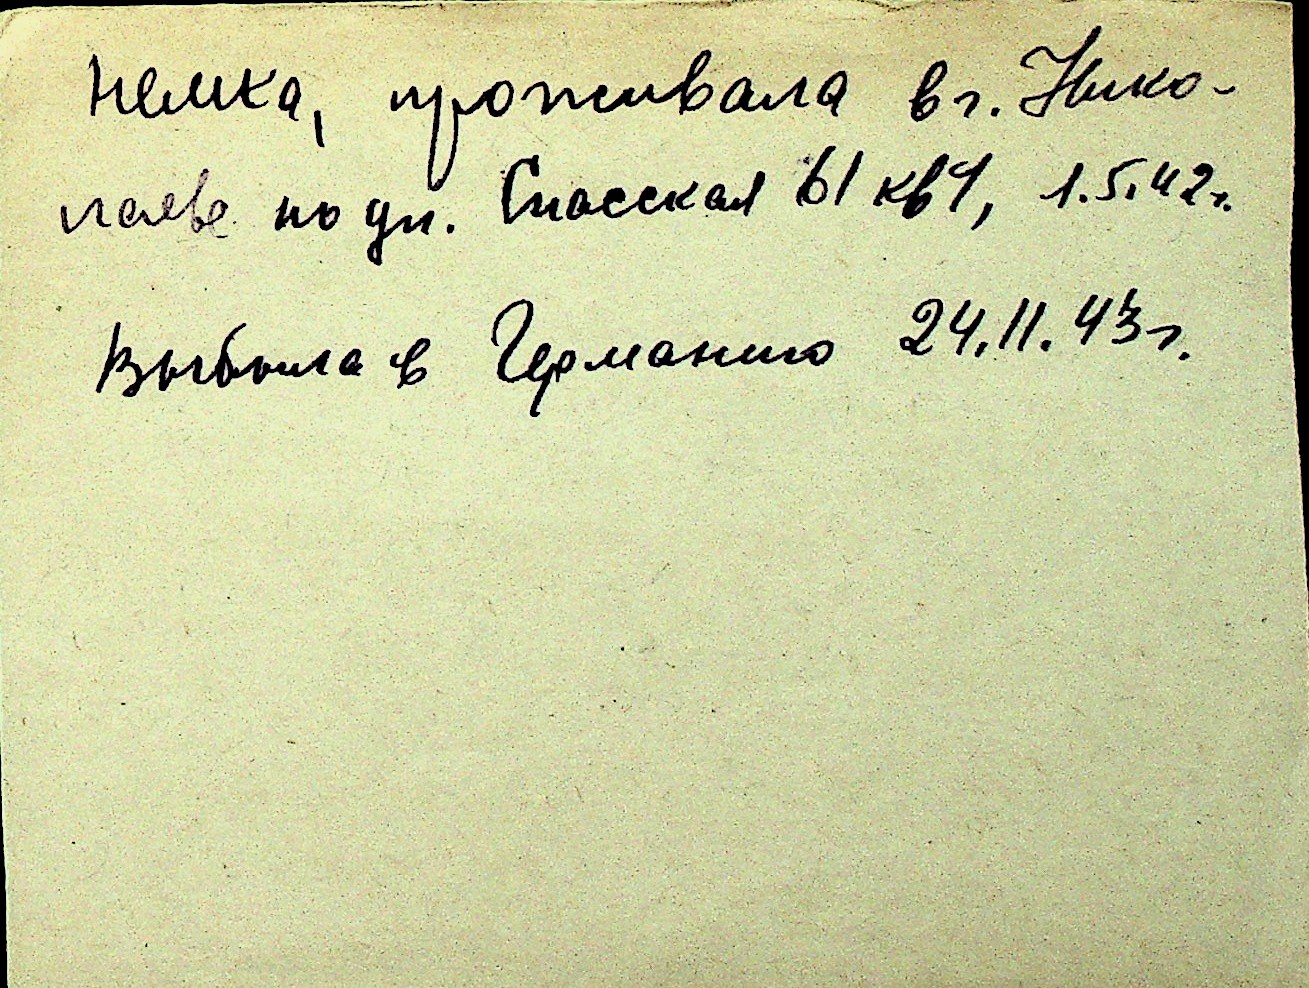 Немка, проживала в г. Нико-
лаеве по ул. Спасская 61 кв 4, 1.5.42 г.
Выбыла в Германию 24.11.43 г.